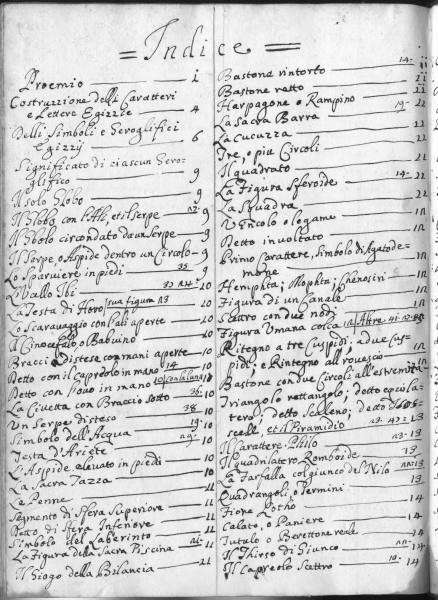 = Indice =
Proemio — 1
Costruzzione delli Caratteri
e Lettere Egizzie — 4
Delli Simboli e Geroglifici
Egizzÿ — 6
Significato di ciascun Gero-
glifico — 9
Il solo Globo — 9
Il Globo con l'Ali, et il serpe — 9
Il Globo circondato da un Serpe — 9
Il Serpe o Aspide dentro un Circolo — 9
Lo Sparviere in piedi — 35 9
L'Uallo Ibi — 10
La Testa di Horo / sua figura 13 — 10
Lo Scaravaggio con l'ali aperte — 10
Il Cinocefalo, o Babuino — 10
Bracci distese con mani aperte — 10
Detto con il capreolo in mano 14 — 10
Detto con l'ouo in mano — 10
La Civetta con Braccio sotto — 36 10
Un Serpe disteso — 38 10
Simbolo dell'Acqua — 19 10
Testa d'Ariete — 10
L'Aspide elevato in piedi — 10
La Sacra Tazza — 10
Le Penne — 11
Segmento di Sfera Superiore — 11
Detto di Sfera Inferiore — 11
Simbolo del Laberinto — 11
La Figura della Sacra Piscina — 11
Il Giogo della Bilancia — 11
Bastone rintorto — 14 11
Bastone retto — 11
Harpagone o Rampino — 19 11
La Sacra Barra — 11
La Cucuzza — 11
Tre, o piu Circoli — 11
Il quadrato — 11
La Figura Sferoide — 11
La Squadra — 12
Vincolo o legame — 12
Detto involtato — 12
Primo Carattere, Simbolo di Agatode-
mone — 12
Hemphta; Mophta; Phenosiri — 12
Figura di un Canale — 12
Scettro con due nodi — 12
Figura Umana colca 12 / Altre
Ritegno a tre Cuspidi, a due Cus-
pidi; e Rintegno all rovescio — 12
Bastone con due Circoli all'estremità — 12
Triangolo rettangolo; detto equila-
tero; detto Scaleno; detto Isos-
scele, et il Piramidio — 13
Il Carattere Philio — 13
Il quadrilatero Romboide — 13
La Farfalla col giunco del Nilo — 13
Quadrangoli, o Termini — 13
Fiore Lotho — 14
Calato, o Paniere — 14
Tutulo o Berettone reale — 14
Il Thirso di Giunco — 14
Il Capreolo Scettro — 10 14